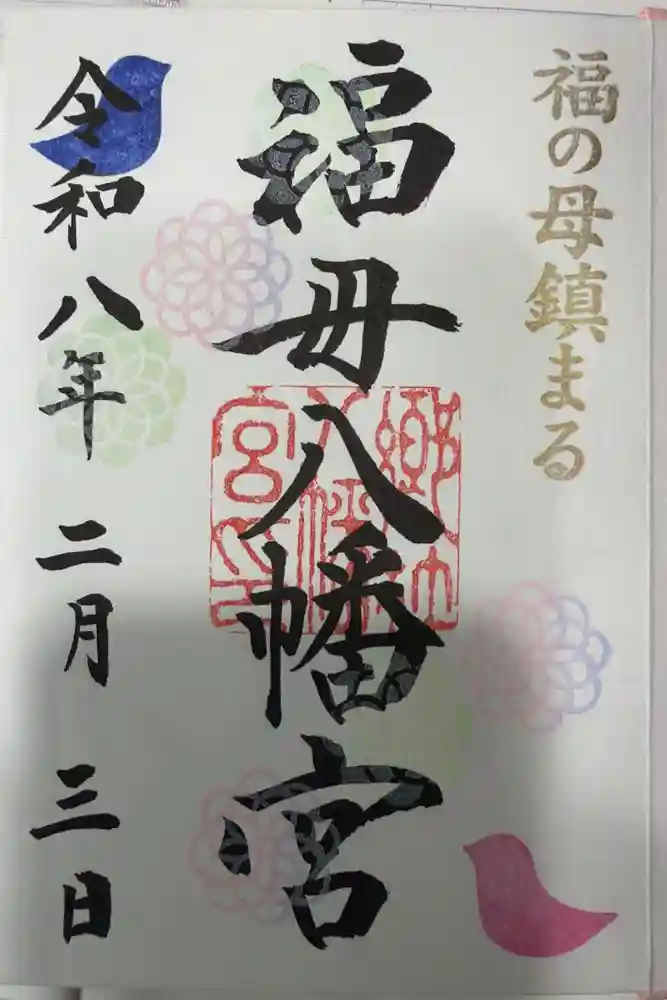 福の母鎮まる
福母八幡宮
令和八年 二月 三日